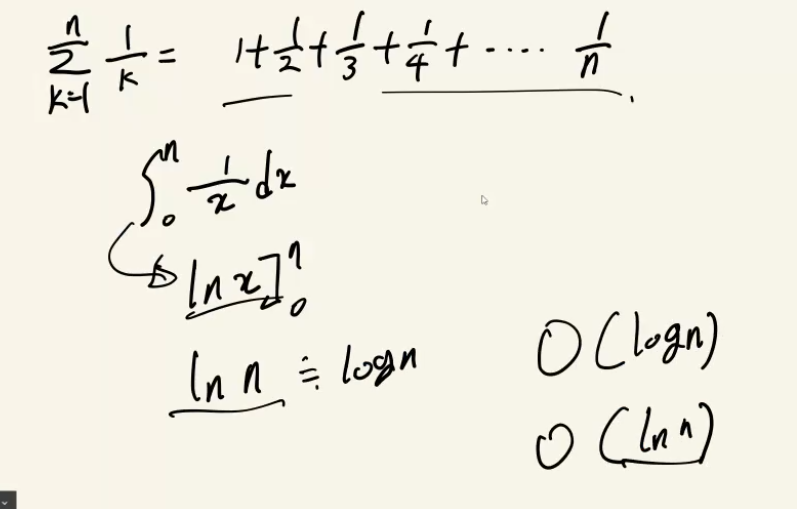 \sum_{k=1}^{n} \frac{1}{k} = 1 + \frac{1}{2} + \frac{1}{3} + \frac{1}{4} + \cdots \frac{1}{n}.
\int_{0}^{n} \frac{1}{x} dx
ln x]_{0}^{n}
ln n ≒ log n
O (log n)
O (ln n)